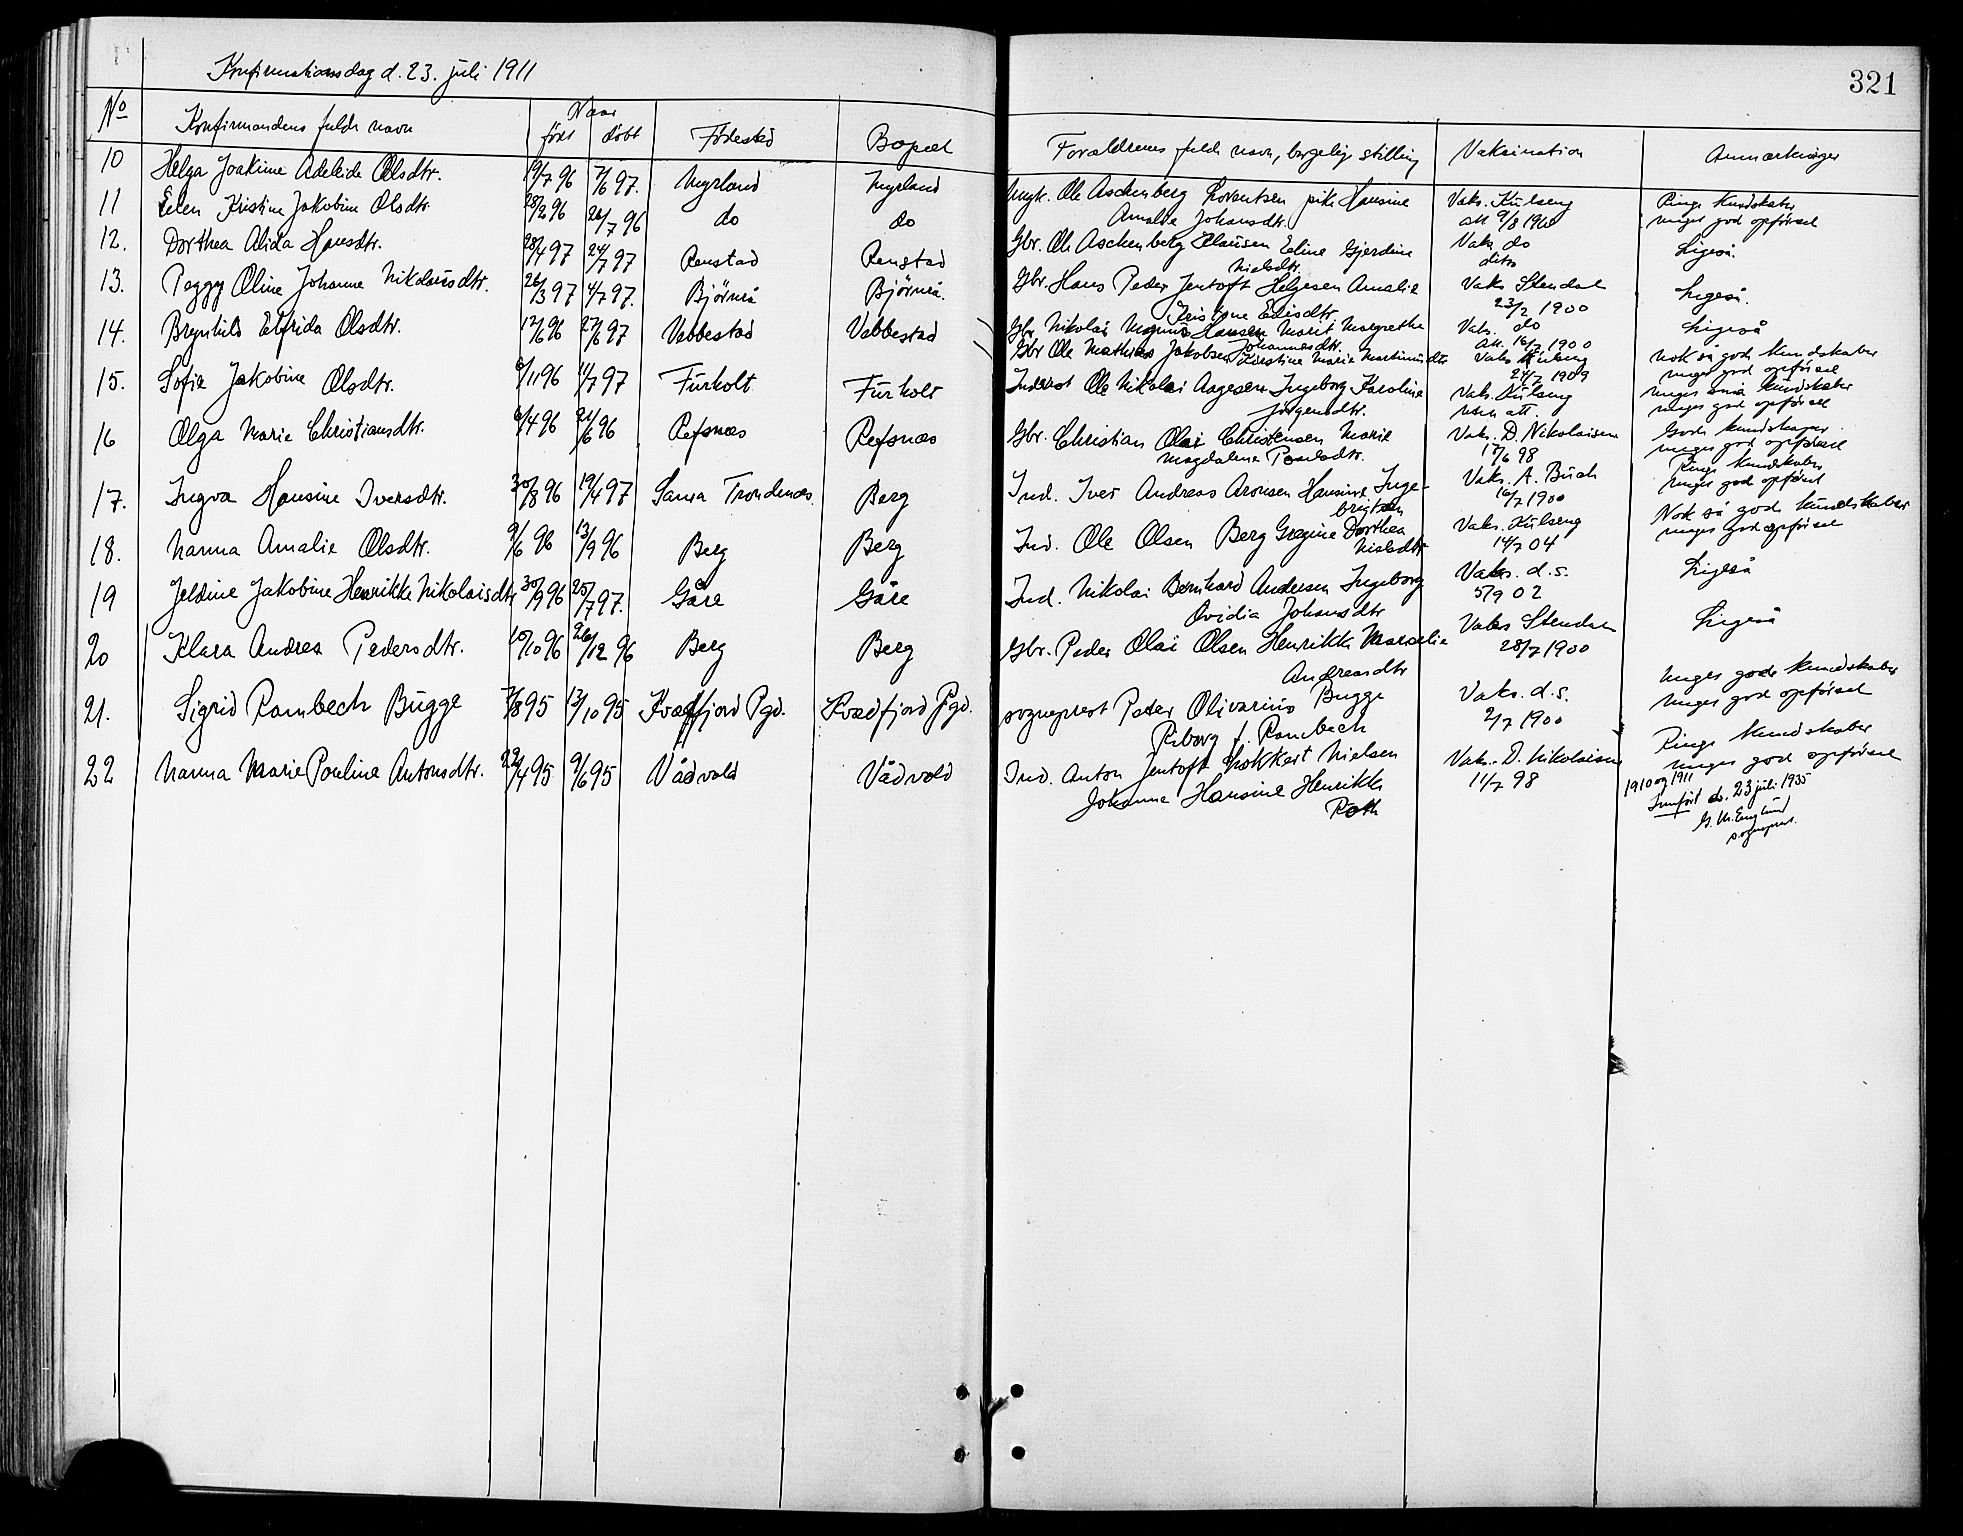 321
Konfirmationsdag d. 23. juli 1911
No Konfirmandens fulde navn Naar født døbt Fødested Bopæl Forældrenes fulde navn, borgelig stilling Vaksination Anmærkninger
10 Helga Joakime Adeleide Olsdtr. 19/7 96 7/6 97. Myrland Myrland Ungk. Ole Aschenberg Lorentsen pike Hansine Vaks. Kulseng Ringe kundskaber
Amalie Johansdtr. att 9/8 1900 meget god opførsel
11 Elen Kristine Jakobine Olsdtr. 28/2 96 26/7 96 do do Gbr. Ole Aschenberg Klausen Eline Gjerdine Vaks. do Ligeså.
Nielsdtr. ditto
12. Dorthea Alida Hansdtr. 28/4 97 24/7 97 Renstad Renstad Gbr. Hans Peder Jentoft Helgesen Amalie Vaks Stendal Ligeså.
Kristine Edisdtr. 23/7 1900
13. Peggy Oline Johanne Nikolaisdtr. 26/3 97 4/7 97. Björnrå Björnrå. Gbr. Nikolai Magnus Hansen Marit Margrethe Vaks. do Ligeså
Johannesdtr. att. 16/7 1900
14. Brynhild Elfrida Olsdtr. 12/6 96 27/6 97 Vebbestad Vebbestad Gbr Ole Mathias Jakobsen Kirstine Marie Martinusdtr Vaks Kulseng Nok så gode kundskaber
24/7 1909 meget god opførsel
15. Sofie Jakobine Olsdtr. 6/11 96 11/7 97 Furholt Furholt Inderst Ole Nikolai Aagesen Ingeborg Karoline Vaks. Kulseng meget små kundskaber
Jörgensdtr. uten att. meget god opførsel
16 Olga Marie Christiansdtr. 6/4 96 21/6 96 Refsnæs Refsnæs Gbr. Christian Olai Christensen Marie Vaks. D. Nikolaisen Gode kundskaper
Magdalena Paulsdtr. 17/6 98 meget god opførsel
17. Ingva Hansine Iversdtr. 30/8 96 19/4 97 Sama Trondenæs Berg Ind. Iver Andreas Aronsen Hansine Inge- Vaks. A. Buch Ringe kundskaber
brigtsen 16/7 1900 meget god opførsel
18. Nanna Amalie Olsdtr. 9/6 96 13/9 96 Berg Berg Ind. Ole Olsen Berg Gregine Dorthea Vaks. Kulseng Nok så gode kundskaber
Nielsdtr 14/7 04 meget god opførsel
19 Jeldine Jakobine Henrikke Nikolaisdtr 30/9 96 25/7 97. Gåre Gåre Ind. Nikolai Bernhard Andersen Ingeborg Vaks. d.s. Ligeså
Ovidia Johansdtr 5/9 02
20 Klara Andrea Pedersdtr. 10/10 96 26/12 96 Berg Berg Gbr. Peder Olai Olsen Henrikke Marselie Vaks Stendal Ligeså
Andreasdtr 28/7 1900
21. Sigrid Rambech Bugge 7/8 95 13/10 95 Kvæfjord Pgd. Kvædfjord Pgd. sogneprest Peder Olivarius Bugge Vaks. d.s. meget gode kundskaber
Riborg f. Rambech 2/7 1900 meget god opførsel
22 Nanna Marie Pauline Antonsdtr. 22/4 95 9/6 95 Vådvold Vådvold Ind. Anton Jentoft Lokkert Nielsen Vaks. D. Nikolaisen Ringe kundskaber
Johanna Hansine Henrikke 11/7 98 meget god opførsel
Roth
1910 og 1911
Innfört d. 23 juli 1935
G. M. Englund
sogneprest.